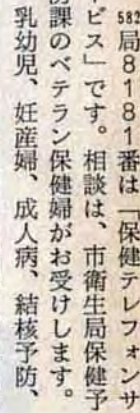 582局8181番は「保健テレフォンサ
ービス」です。相談は、市衛生局保健予
防課のベテラン保健婦がお受けします。
乳幼児、妊産婦、成人病、結核予防、